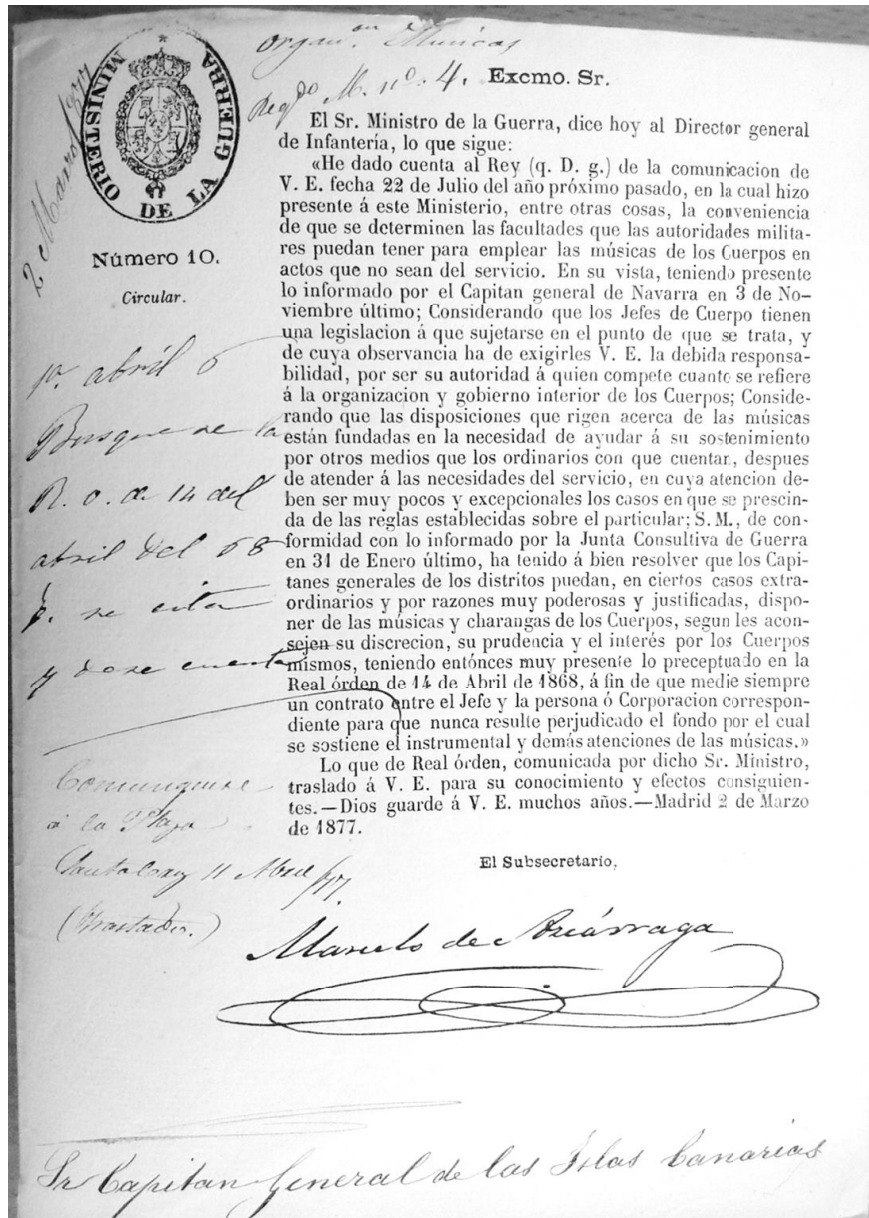 organ.on Musicas
Reg.do M. nº. 4.
2 Marzo /877
MINISTERIO DE LA GUERRA
Número 10.
Circular.
Excmo. Sr.
El Sr. Ministro de la Guerra, dice hoy al Director general
de Infantería, lo que sigue:
«He dado cuenta al Rey (q. D. g.) de la comunicacion de
V. E. fecha 22 de Julio del año próximo pasado, en la cual hizo
presente á este Ministerio, entre otras cosas, la conveniencia
de que se determinen las facultades que las autoridades milita-
res puedan tener para emplear las músicas de los Cuerpos en
actos que no sean del servicio. En su vista, teniendo presente
lo informado por el Capitan general de Navarra en 3 de No-
viembre último; Considerando que los Jefes de Cuerpo tienen
una legislacion á que sujetarse en el punto de que se trata, y
de cuya observancia ha de exigirles V. E. la debida responsa-
bilidad, por ser su autoridad á quien compete cuanto se refiere
á la organizacion y gobierno interior de los Cuerpos; Conside-
rando que las disposiciones que rigen acerca de las músicas
están fundadas en la necesidad de ayudar á su sostenimiento
por otros medios que los ordinarios con que cuentan, despues
de atender á las necesidades del servicio, en cuya atencion de-
ben ser muy pocos y excepcionales los casos en que se prescin-
da de las reglas establecidas sobre el particular; S. M., de con-
formidad con lo informado por la Junta Consultiva de Guerra
en 31 de Enero último, ha tenido á bien resolver que los Capi-
tanes generales de los distritos puedan, en ciertos casos extra-
ordinarios y por razones muy poderosas y justificadas, dispo-
ner de las músicas y charangas de los Cuerpos, segun les acon-
sejen su discrecion, su prudencia y el interés por los Cuerpos
mismos, teniendo entónces muy presente lo preceptuado en la
Real órden de 14 de Abril de 1868, á fin de que medie siempre
un contrato entre el Jefe y la persona ó Corporacion correspon-
diente para que nunca resulte perjudicado el fondo por el cual
se sostiene el instrumental y demás atenciones de las músicas.»
Lo que de Real órden, comunicada por dicho Sr. Ministro,
traslado á V. E. para su conocimiento y efectos consiguien-
tes.—Dios guarde á V. E. muchos años.—Madrid 2 de Marzo
de 1877.
abril 6
Busquese la
R. o. de 14 del
abril del 68
q. se cita
y dese cuenta
Comuniquese
á la Plaza
Santa Cruz 11 Abril /77.
El Subsecretario,
Marcelo de Azcárraga
Sr Capitan General de las Islas Canarias